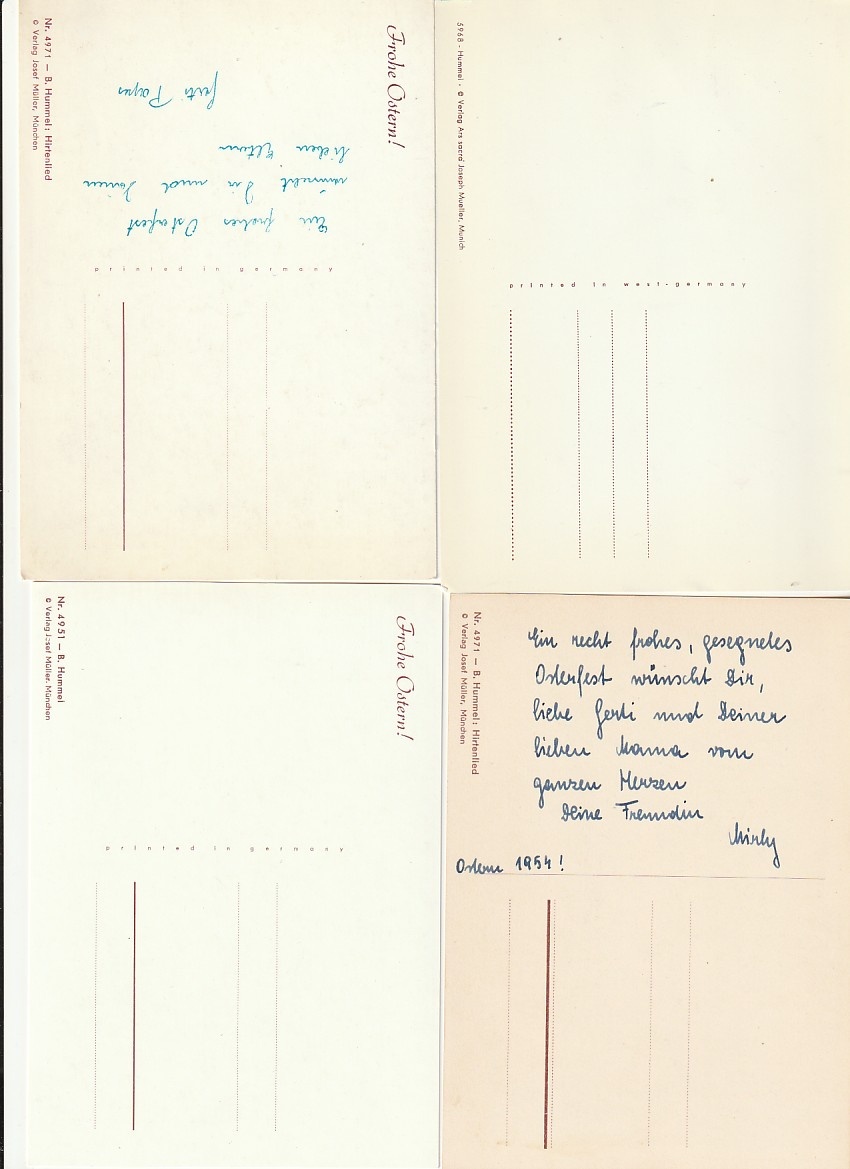 Nr. 4971 — B. Hummel: Hirtenlied
© Verlag Josef Müller, München
Frohe Ostern!
Ein frohes Osterfest
wünscht Dir und Deinen
lieben Eltern
Gerti
printed in germany
5968 - Hummel - © Verlag Ars sacra Joseph Mueller, Munich
printed in west-germany
Nr. 4951 — B. Hummel
© Verlag Josef Müller, München
Frohe Ostern!
printed in germany
Nr. 4971 — B. Hummel: Hirtenlied
© Verlag Josef Müller, München
Ein recht frohes, gesegnetes
Osterfest wünscht Dir,
liebe Gerti und Deiner
lieben Mama vom
ganzen Herzen
Deine Freundin
Mirly
Ostern 1954!